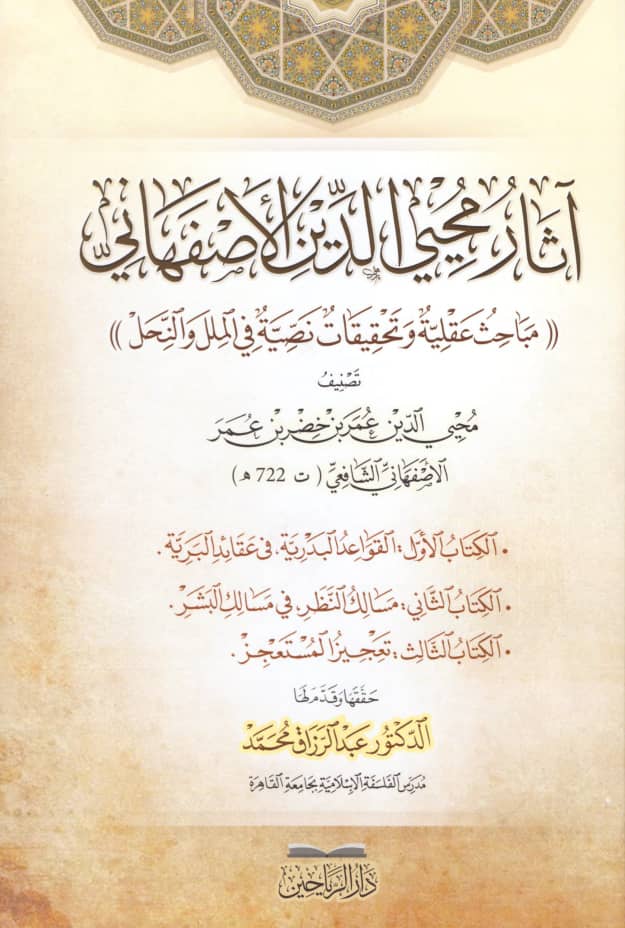 آثَارُ مُحْيِي الدِّيْنِ الأَصْفَهَانِيِّ
(( مَبَاحِثُ عَقْلِيَّةٌ وَتَحْقِيقَاتٌ نَصِّيَّةٌ فِي المِلَلِ وَالنِّحَلْ ))
تَصْنِيفُ
مُحْيِي الدِّيْنِ عُمَرَ بْنِ خِضْرِ بْنِ عُمَرَ
الأَصْفَهَانِيِّ الشَّافِعِيِّ ( ت 722 هـ )
• الكِتَابُ الأَوَّلُ : القَوَاعِدُ البَدْرِيَّة، فى عَقَائِدِ البَرِيَّة .
• الكِتَابُ الثَّانِي : مَسَالِكُ النَّظَرِ، فِي مَسَالِكِ البَشَرْ .
• الكِتَابُ الثَّالِث : تَعْجِيزُ المُسْتَعْجِزْ .
حَقَّقَهَا وَقَدَّمَ لَهَا
الدَّكْتُور عَبْدُ الرَّزَاق مُحَمَّد
مُدَرِّسُ الفَلْسَفَةِ الإِسْلَامِيَّةِ بِجَامِعَةِ القَاهِرَة
دَارُ الرَّيَاحِين